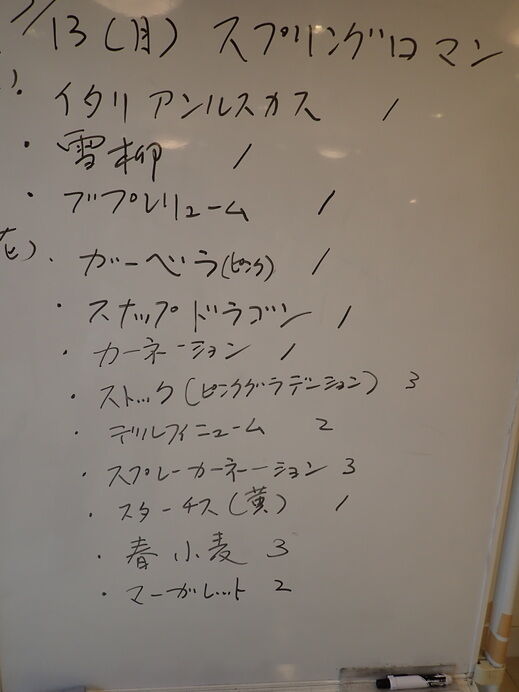 /13(月) スプリングロマン
・イタリアンルスカス 1
・雪柳 1
・ブプレリューム 1
花)・ガーベラ(ピンク) 1
・スナップドラゴン 1
・カーネーション 1
・ストック(ピンクグラデーション) 3
・デルフィニューム 2
・スプレーカーネーション 3
・スターチス(黄) 1
・春小麦 3
・マーガレット 2